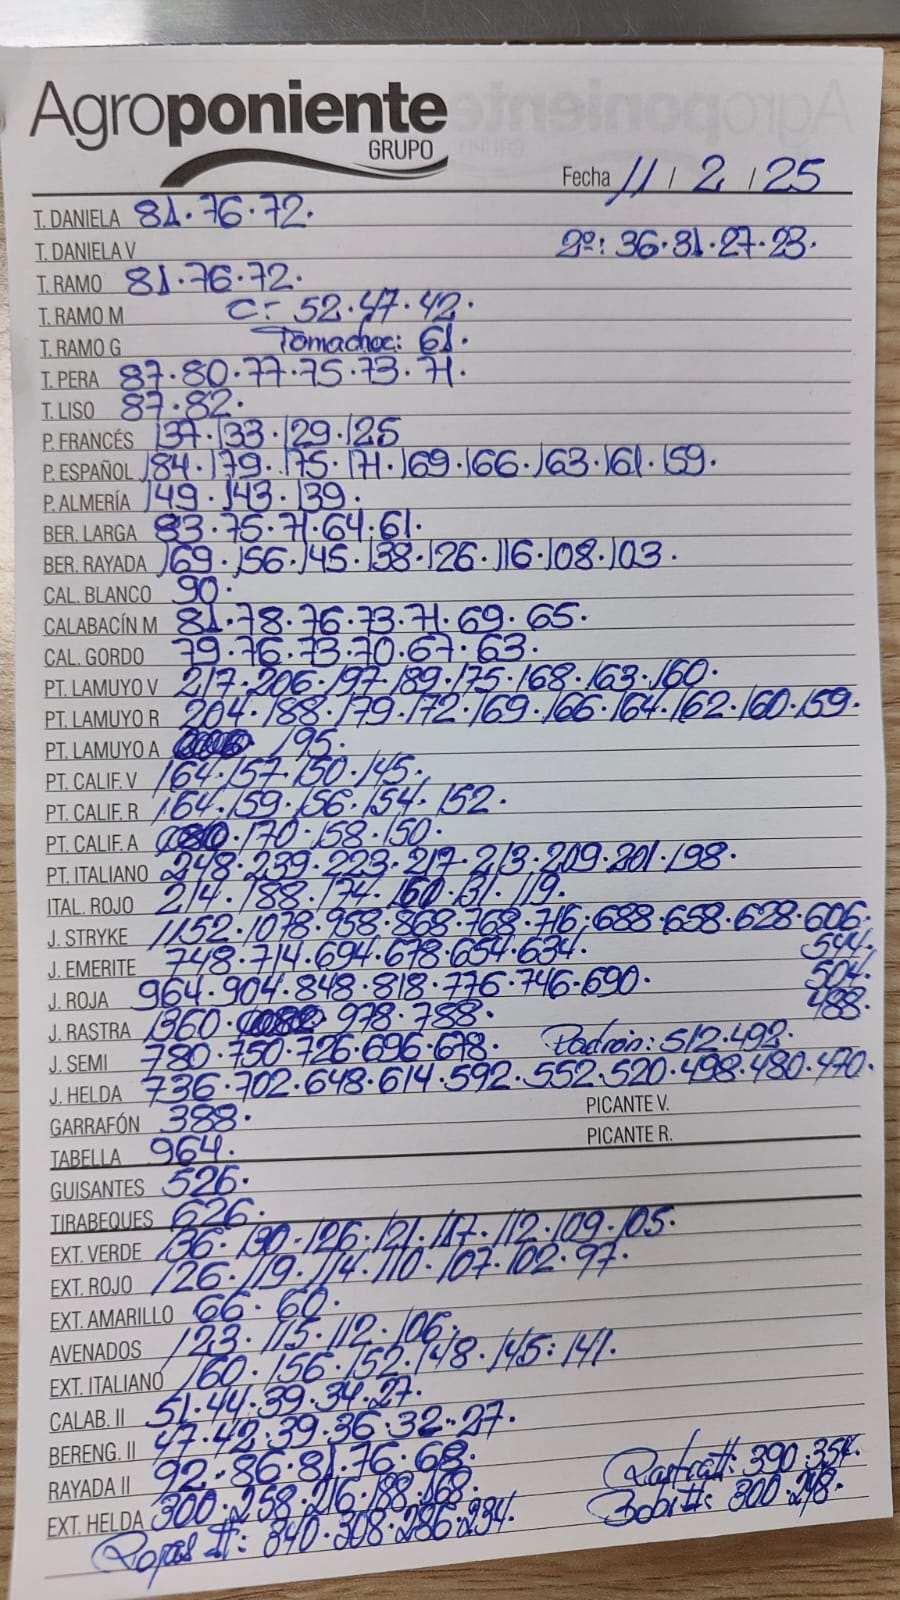 Agroponiente
GRUPO
Fecha 11 / 2 / 25
T. DANIELA 81·76·72·
T. DANIELA V 2º: 36·31·27·23·
T. RAMO 81·76·72·
T. RAMO M C- 52·47·42·
T. RAMO G Tomachoc: 61·
T. PERA 87·80·77·75·73·71·
T. LISO 87·82·
P. FRANCÉS 137·133·129·125
P. ESPAÑOL 184·179·175·171·169·166·163·161·159·
P. ALMERÍA 149·143·139·
BER. LARGA 83·75·71·64·61·
BER. RAYADA 169·156·145·138·126·116·108·103·
CAL. BLANCO 90·
CALABACÍN M 81·78·76·73·71·69·65·
CAL. GORDO 79·76·73·70·67·63·
PT. LAMUYO V 217·206·197·189·175·168·163·160·
PT. LAMUYO R 204·188·179·172·169·166·164·162·160·159·
PT. LAMUYO A 195·
PT. CALIF. V 164·157·150·145·
PT. CALIF. R 164·159·156·154·152·
PT. CALIF. A 170·158·150·
PT. ITALIANO 248·239·223·217·213·209·201·198·
ITAL. ROJO 214·188·174·160·131·119·
J. STRYKE 1152·1078·958·868·768·716·688·658·628·606·
J. EMERITE 748·714·694·678·654·634· 544·
J. ROJA 964·904·848·818·776·746·690· 504·
J. RASTRA 1360· 978·788· 488·
J. SEMI 780·750·726·696·678· Padrón: 512·492·
J. HELDA 736·702·648·614·592·552·520·498·480·470·
GARRAFÓN 388· PICANTE V.
TABELLA 964· PICANTE R.
GUISANTES 526·
TIRABEQUES 626·
EXT. VERDE 136·130·126·121·117·112·109·105·
EXT. ROJO 126·119·114·110·107·102·97·
EXT. AMARILLO 66·60·
AVENADOS 123·115·112·106·
EXT. ITALIANO 160·156·152·148·145·141·
CALAB. II 51·44·39·34·27·
BERENG. II 47·42·39·36·32·27·
RAYADA II 92·86·81·76·68· Rastra II: 390·354·
EXT. HELDA 300·258·216·188·168· Bobi II: 300·248·
Rojas II: 840·308·286·234·